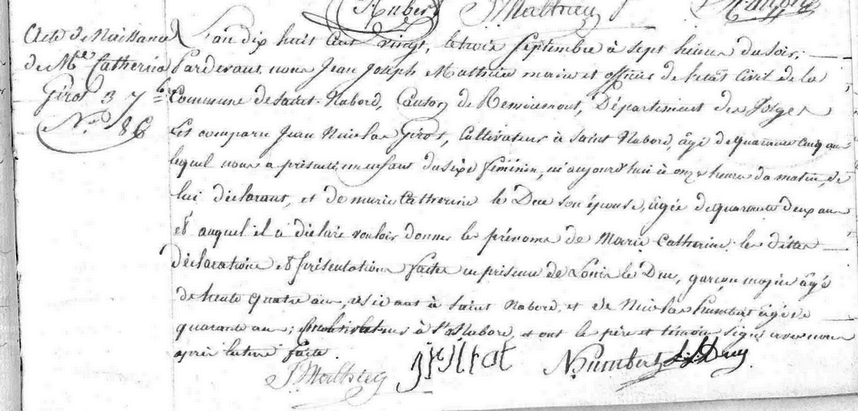 Hubert JJMathieu
Acte de Naissance
de Mie Catherine
Girot 3 7bre
No 86
L'an dix huit cent vingt, le trois Septembre à sept heures du soir;
Pardevant nous Jean Joseph Mathieu maire et officier de l'état civil de la
Commune de Saint-Nabord, Canton de Remiremont, Département des Vosges
Est comparu Jean Nicolas Girot, Cultivateur à Saint Nabord, âgé de quarante cinq ans
lequel nous a présenté un enfant du sexe féminin, né aujourd'hui à onze heures du matin, de
lui déclarant, et de marie Catherine le Duc son épouse, âgée de quarante deux ans
et auquel il a déclaré vouloir donner les prénoms de Marie Catherine; les dittes
déclaration et présentation faite en présence de Louis le Duc, garçon majeur âgé
de trente quatre ans, résidant à Saint Nabord, et de Nicolas humbert âgé de
quarante ans; à St Nabord, et ont les père et témoins signé avec nous
après lecture faite.
JJMathieu Girot N humbert L Duc